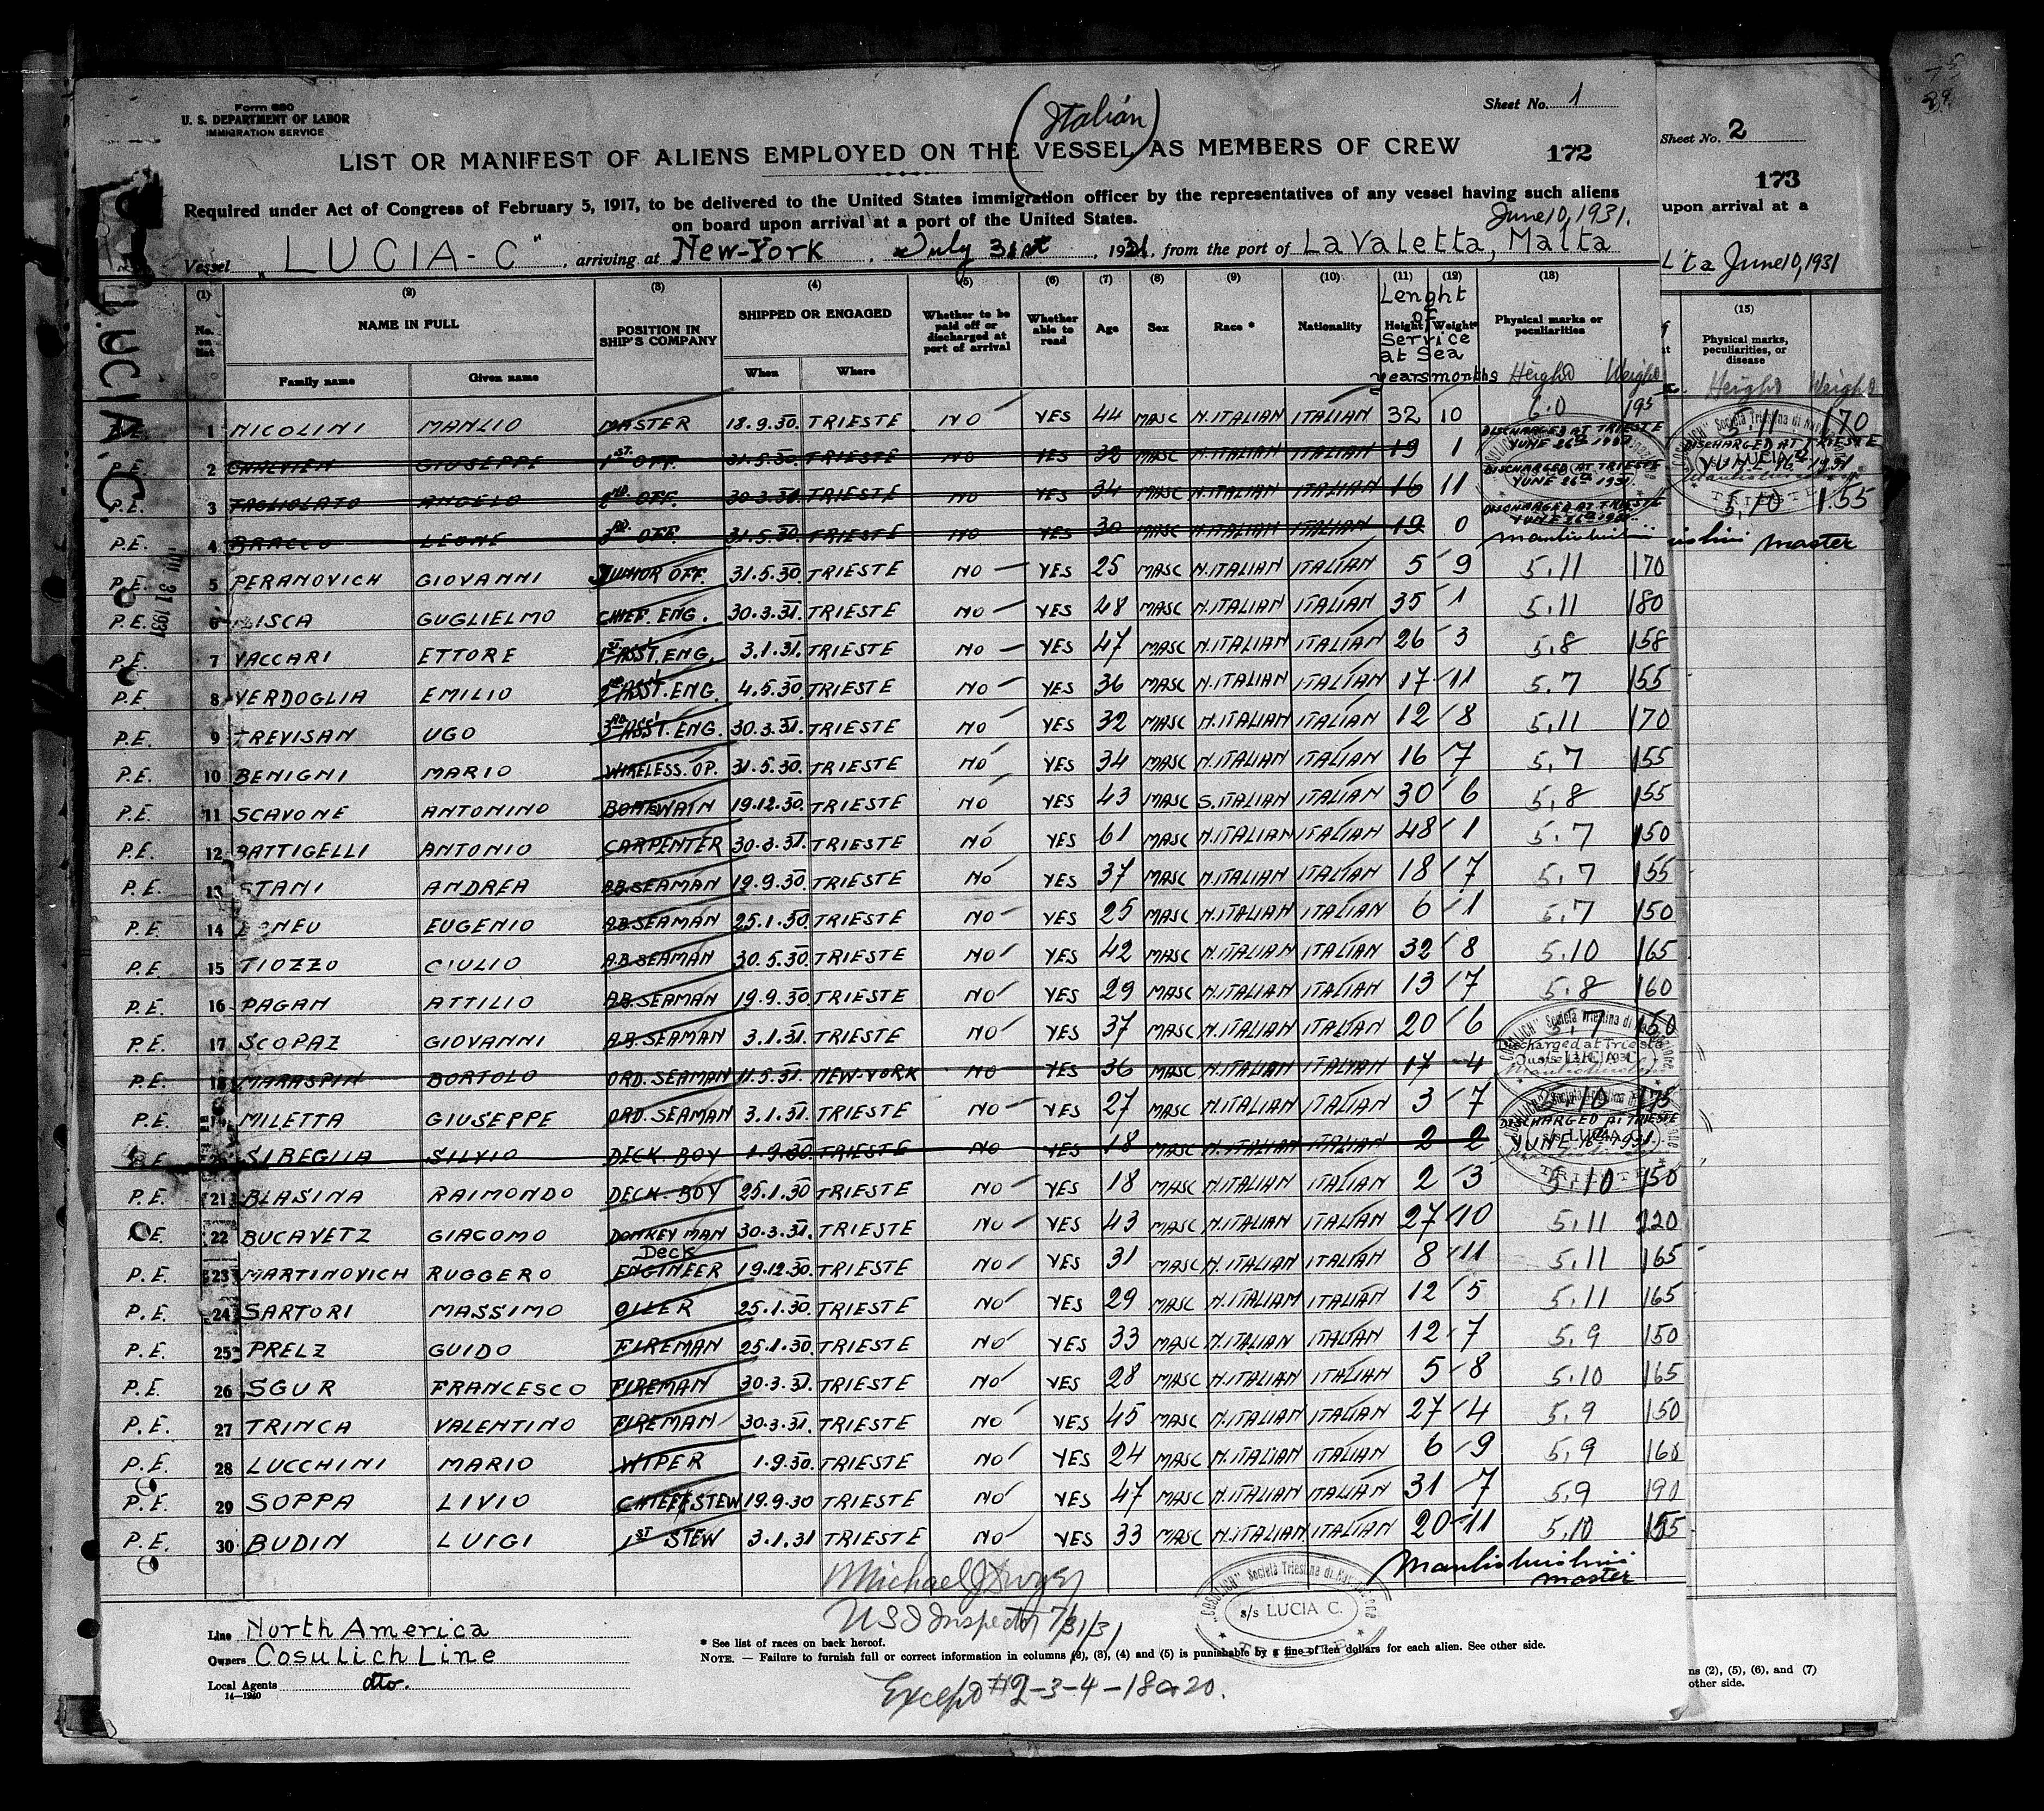 Form 680
U. S. DEPARTMENT OF LABOR
IMMIGRATION SERVICE
(Italian)
Sheet No. 1
LIST OR MANIFEST OF ALIENS EMPLOYED ON THE VESSEL AS MEMBERS OF CREW
172
Required under Act of Congress of February 5, 1917, to be delivered to the United States immigration officer by the representatives of any vessel having such aliens
on board upon arrival at a port of the United States.
June 10, 1931.
Vessel "LUCIA-C", arriving at New-York, July 31st, 1931, from the port of La Valetta, Malta
(1) (2) (3) (4) (5) (6) (7) (8) (9) (10) (11) (12) (13)
No. on list NAME IN FULL POSITION IN SHIP'S COMPANY SHIPPED OR ENGAGED Whether to be paid off or discharged at port of arrival Whether able to read Age Sex Race * Nationality Height Weight Physical marks or peculiarities
Lenght of Service at Sea
Family name Given name When Where years months Height Weight
P.E. 1 NICOLINI MANLIO MASTER 18.9.30. TRIESTE NO YES 44 MASC N.ITALIAN ITALIAN 32 10 6.0 195
P.E. 2 GIUSEPPE 1st OFF. 31.5.30. TRIESTE NO YES 32 MASC N.ITALIAN ITALIAN 19 1 DISCHARGED AT TRIESTE YUNE 26th 1931.
P.E. 3 TAGLIOLATO ANGELO 2nd OFF. 30.3.31. TRIESTE NO YES 34 MASC N.ITALIAN ITALIAN 16 11 DISCHARGED AT TRIESTE YUNE 26th 1931.
P.E. 4 BRACCO LEONE 3rd OFF. 31.5.30. TRIESTE NO YES 30 MASC N.ITALIAN ITALIAN 19 0 DISCHARGED AT TRIESTE YUNE 26th 1931.
P.E. 5 PERANOVICH GIOVANNI JUNIOR OFF. 31.5.30. TRIESTE NO YES 25 MASC N.ITALIAN ITALIAN 5 9 5.11 170
P.E. 6 GUGLIELMO CHIEF. ENG. 30.3.31. TRIESTE NO YES 28 MASC N.ITALIAN ITALIAN 35 1 5.11 180
P.E. 7 VACCARI ETTORE 1st ASST. ENG. 3.1.31. TRIESTE NO YES 47 MASC N.ITALIAN ITALIAN 26 3 5.8 158
P.E. 8 VERDOGLIA EMILIO 2nd ASST. ENG. 4.5.30 TRIESTE NO YES 36 MASC N.ITALIAN ITALIAN 17 11 5.7 155
P.E. 9 TREVISAN UGO 3rd ASST. ENG. 30.3.31. TRIESTE NO YES 32 MASC N.ITALIAN ITALIAN 12 8 5.11 170
P.E. 10 BENIGNI MARIO WIRELESS. OP. 31.5.30. TRIESTE NO YES 34 MASC N.ITALIAN ITALIAN 16 7 5.7 155
P.E. 11 SCAVONE ANTONINO BOATSWAIN 19.12.30. TRIESTE NO YES 43 MASC S.ITALIAN ITALIAN 30 6 5.8 155
P.E. 12 BATTIGELLI ANTONIO CARPENTER 30.3.31. TRIESTE NO YES 61 MASC N.ITALIAN ITALIAN 48 1 5.7 150
P.E. 13 STANI ANDREA A.B. SEAMAN 19.9.30. TRIESTE NO YES 37 MASC N.ITALIAN ITALIAN 18 7 5.7 155
P.E. 14 EUGENIO A.B. SEAMAN 25.1.30 TRIESTE NO YES 25 MASC N.ITALIAN ITALIAN 6 1 5.7 150
P.E. 15 TIOZZO GIULIO A.B. SEAMAN 30.5.30. TRIESTE NO YES 42 MASC N.ITALIAN ITALIAN 32 8 5.10 165
P.E. 16 PAGAN ATTILIO A.B. SEAMAN 19.9.30 TRIESTE NO YES 29 MASC N.ITALIAN ITALIAN 13 7 5.8 160
P.E. 17 SCOPAZ GIOVANNI A.B. SEAMAN 3.1.31. TRIESTE NO YES 37 MASC N.ITALIAN ITALIAN 20 6 5.7 150
P.E. 18 MARASPIN BORTOLO ORD. SEAMAN 11.5.31. NEW-YORK NO YES 36 MASC N.ITALIAN ITALIAN 17 4 Discharged at Trieste
P.E. 19 MILETTA GIUSEPPE ORD. SEAMAN 3.1.31. TRIESTE NO YES 27 MASC N.ITALIAN ITALIAN 3 7 5.10 175
P.E. 20 SIBEGIIA SILVIO DECK. BOY 1.9.30. TRIESTE NO YES 18 MASC N.ITALIAN ITALIAN 2 2 DISCHARGED AT TRIESTE
P.E. 21 BLASINA RAIMONDO DECK. BOY 25.1.30 TRIESTE NO YES 18 MASC N.ITALIAN ITALIAN 2 3 5.10 150
P.E. 22 BUCAVETZ GIACOMO DONKEY MAN 30.3.31. TRIESTE NO YES 43 MASC N.ITALIAN ITALIAN 27 10 5.11 220
P.E. 23 MARTINOVICH RUGGERO Deck ENGINEER 19.12.30. TRIESTE NO YES 31 MASC N.ITALIAN ITALIAN 8 11 5.11 165
P.E. 24 SARTORI MASSIMO OILER 25.1.30. TRIESTE NO YES 29 MASC N.ITALIAN ITALIAN 12 5 5.11 165
P.E. 25 PRELZ GUIDO FIREMAN 25.1.30. TRIESTE NO YES 33 MASC N.ITALIAN ITALIAN 12 7 5.9 150
P.E. 26 SGUR FRANCESCO FIREMAN 30.3.31. TRIESTE NO YES 28 MASC N.ITALIAN ITALIAN 5 8 5.10 165
P.E. 27 TRINCA VALENTINO FIREMAN 30.3.31. TRIESTE NO YES 45 MASC N.ITALIAN ITALIAN 27 4 5.9 150
P.E. 28 LUCCHINI MARIO WIPER 1.9.30. TRIESTE NO YES 24 MASC N.ITALIAN ITALIAN 6 9 5.9 160
P.E. 29 SOPPA LIVIO CHIEF STEW 19.9.30 TRIESTE NO YES 47 MASC N.ITALIAN ITALIAN 31 7 5.9 190
P.E. 30 BUDIN LUIGI 1st STEW 3.1.31 TRIESTE NO YES 33 MASC N.ITALIAN ITALIAN 20 11 5.10 155
Michael J Dwyer
Master
USI Inspector 7/31/31
"COSULICH" Società Triestina di Navigazione
s/s LUCIA C.
TRIESTE
Line North America
Owners Cosulich Line
Local Agents dto.
14-1240
* See list of races on back hereof.
NOTE. — Failure to furnish full or correct information in columns (2), (3), (4) and (5) is punishable by a fine of ten dollars for each alien. See other side.
Except #2-3-4-18 & 20.
LUCIA C.
JUL 31 1931
Sheet No. 2
173
upon arrival at a
June 10, 1931
(15)
Physical marks, peculiarities, or disease
Height Weight
5.11 170
DISCHARGED AT TRIESTE
5.10 155
Master
(2), (5), (6), and (7)
other side.